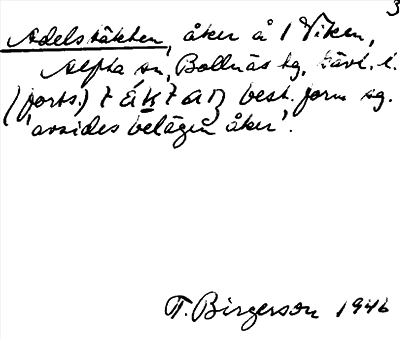 3
Adelstäkten, åker å 1 Viken,
Alfta sn, Bollnäs tg, Gävl. l.
(forts.) best. form sg.
'avsides belägen åker'.
T. Birgerson 1946